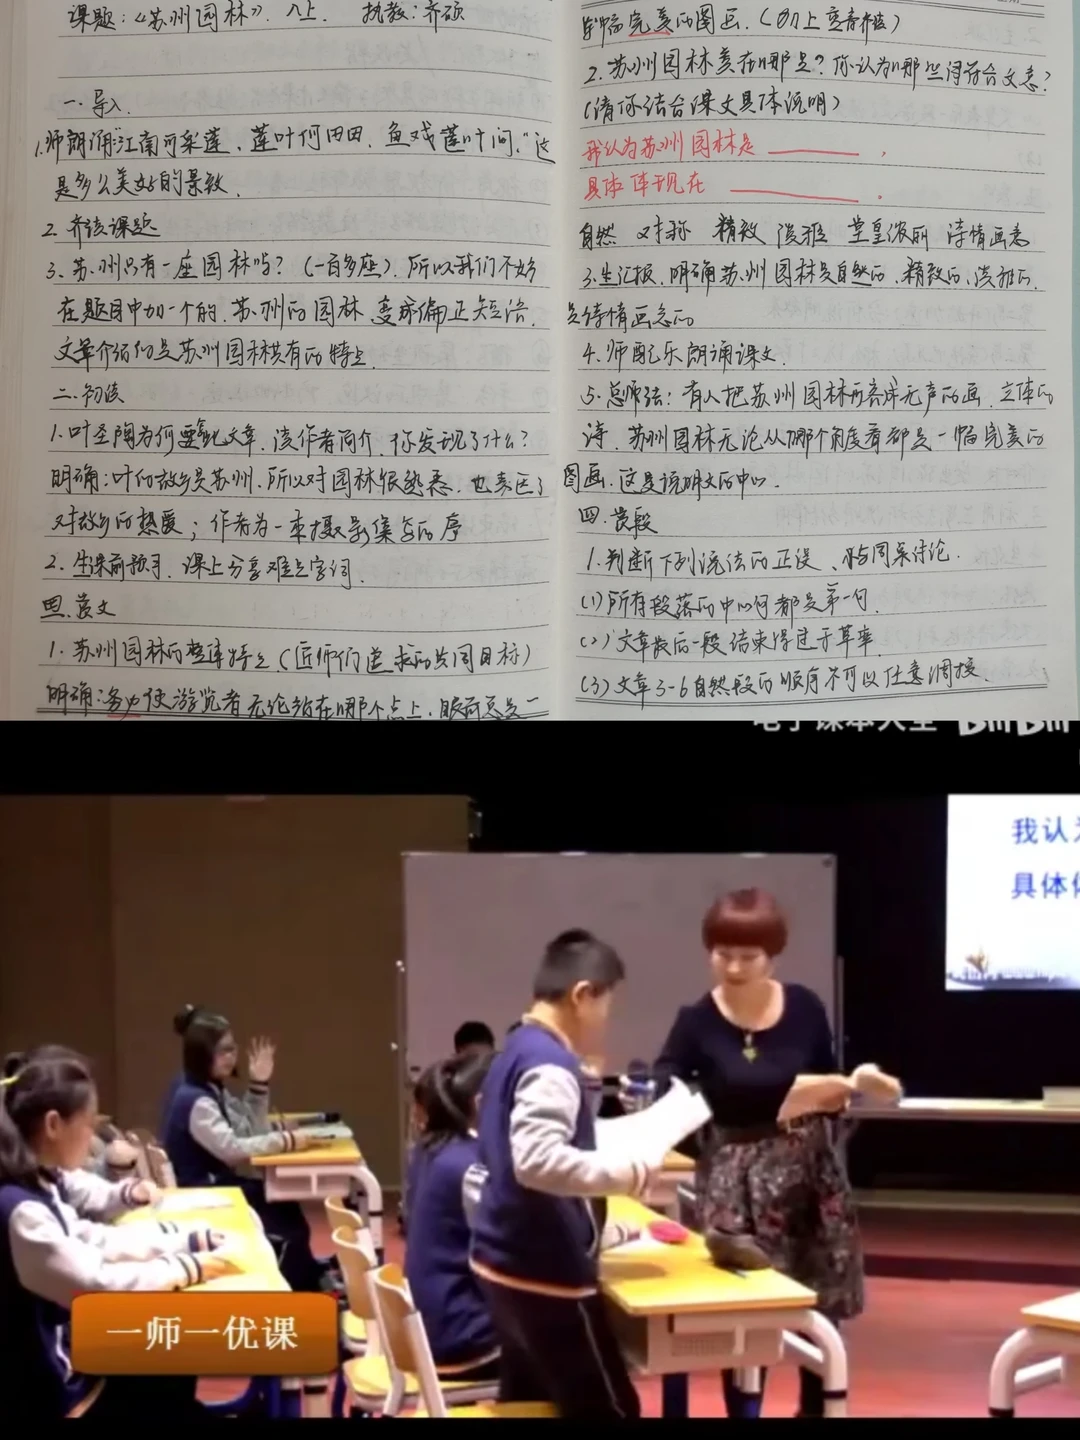 课题:《苏州园林》. 八上. 执教:齐硕
一. 导入.
1.师朗诵:"江南可采莲、莲叶何田田、鱼戏莲叶间."这
是多么美好的景致.
2. 齐读课题
3. 苏州只有一座园林吗?(一百多座). 所以我们不妨
在题目中加一个的. 苏州的园林. 变成偏正短语.
文章介绍的是苏州园林共有的特点.
二. 初读
1. 叶圣陶为何要写此文章. 读作者简介. 你发现了什么?
明确:叶的故乡是苏州. 所以对园林很熟悉. 也表达了
对故乡的热爱;作者为一本摄影集写的序
2. 生课前预习. 课上分享难点字词.
三. 赏文
1. 苏州园林的整体特点.(匠师们追求的共同目标)
明确:务必使游览者无论站在哪个点上. 眼前总是一
幅完美的图画.(加上
2. 苏州园林美在哪里?你认为哪些词符合文意?
(请你结合课文具体说明)
我认为苏州园林是 ______ .
具体体现在 ______ .
自然 对称 精致 淡雅 堂皇浓丽 诗情画意
3.生汇报. 明确苏州园林是自然的、精致的、淡雅的.
是诗情画意的
4. 师配乐朗诵课文.
5. 总师法:有人把苏州园林形容成无声的画. 立体的
诗. 苏州园林无论从哪个角度看都是一幅完美的
图画. 这是说明文的中心.
四. 赏段
1. 判断下列说法的正误、时与同桌讨论.
(1) 所有段落的中心句都是第一句.
(2) 文章最后一段结束得过于草率.
(3) 文章3-6自然段的顺序不可以任意调换.
电子课本大全 bilibili
我认为
具体体
一师一优课